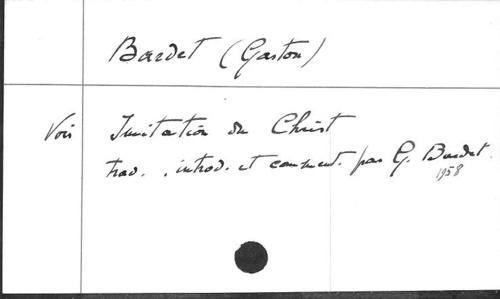 Bardet (Gaston)
Voir Imitation du Christ
trad., introd. et comment. par G. Bardet.
1958